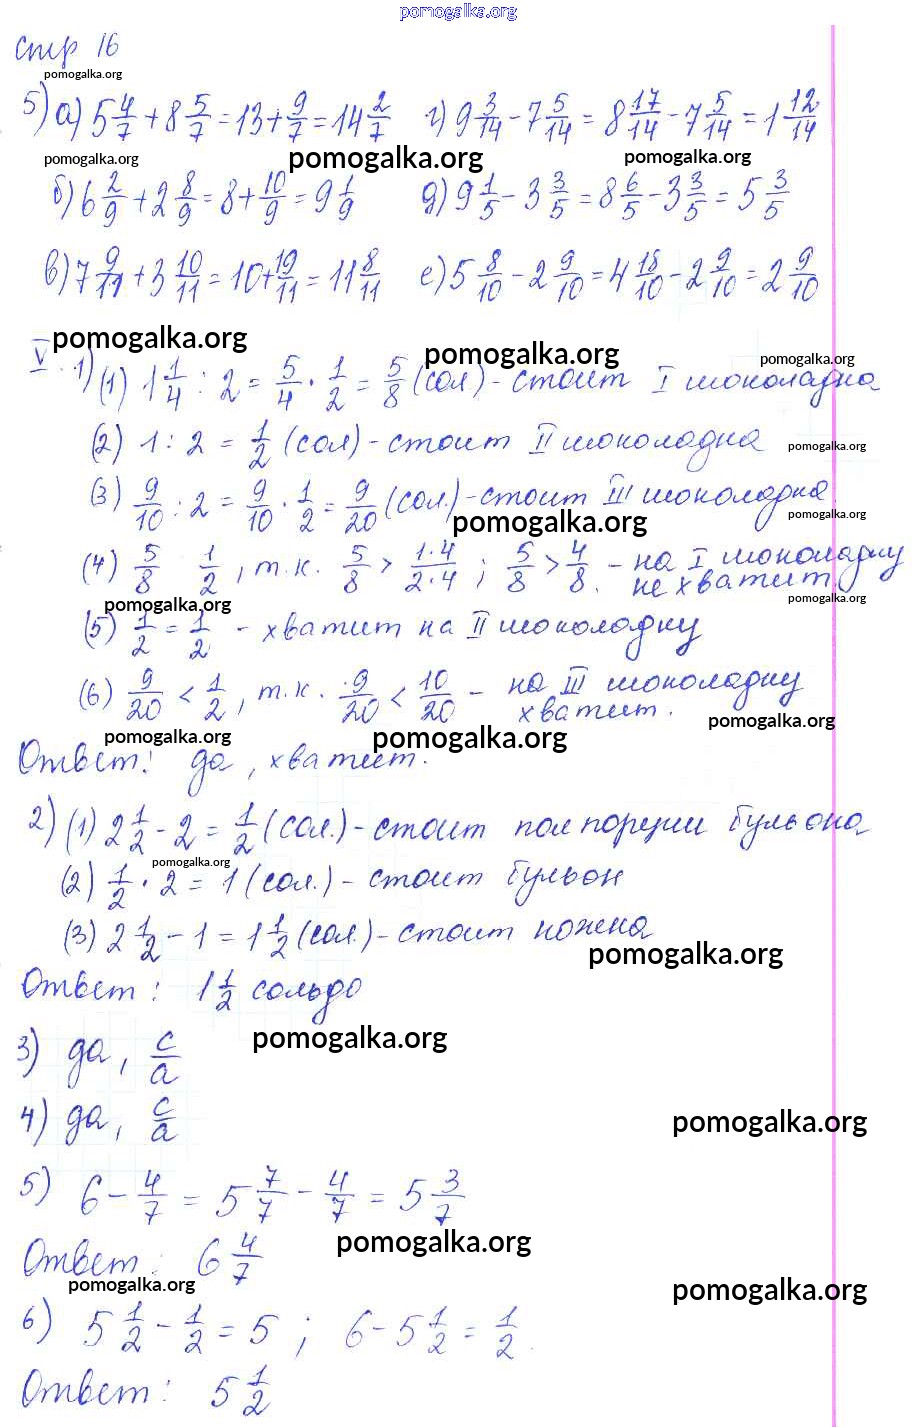 pomogalka.org
стр 16
pomogalka.org
5) а) 5 4/7 + 8 5/7 = 13 + 9/7 = 14 2/7 г) 9 3/14 - 7 5/14 = 8 17/14 - 7 5/14 = 1 12/14
pomogalka.org pomogalka.org pomogalka.org
б) 6 2/9 + 2 8/9 = 8 + 10/9 = 9 1/9 д) 9 1/5 - 3 3/5 = 8 6/5 - 3 3/5 = 5 3/5
в) 7 9/11 + 3 10/11 = 10 + 19/11 = 11 8/11 е) 5 8/10 - 2 9/10 = 4 18/10 - 2 9/10 = 2 9/10
pomogalka.org pomogalka.org pomogalka.org
V. 1) (1) 1 1/4 : 2 = 5/4 · 1/2 = 5/8 (сол) - стоит I шоколадка
(2) 1 : 2 = 1/2 (сол) - стоит II шоколадка
pomogalka.org
(3) 9/10 : 2 = 9/10 · 1/2 = 9/20 (сол.) - стоит III шоколадка
pomogalka.org pomogalka.org
(4) 5/8 1/2, т.к. 5/8 > 1·4/2·4 ; 5/8 > 4/8. - на I шоколадку
не хватит
pomogalka.org pomogalka.org
(5) 1/2 = 1/2 - хватит на II шоколадку
(6) 9/20 < 1/2, т.к. 9/20 < 10/20 - на III шоколадку
хватит.
pomogalka.org pomogalka.org pomogalka.org
Ответ: да, хватит.
2) (1) 2 1/2 - 2 = 1/2 (сол.) - стоит пол порции бульона
pomogalka.org
(2) 1/2 · 2 = 1 (сол.) - стоит бульон
(3) 2 1/2 - 1 = 1 1/2 (сол.) - стоит ножка
pomogalka.org
Ответ: 1 1/2 сольдо
pomogalka.org
3) да, c/a
4) да, c/a
pomogalka.org
5) 6 - 4/7 = 5 7/7 - 4/7 = 5 3/7
pomogalka.org
Ответ: 6 4/7
pomogalka.org pomogalka.org
6) 5 1/2 - 1/2 = 5 ; 6 - 5 1/2 = 1/2.
Ответ: 5 1/2